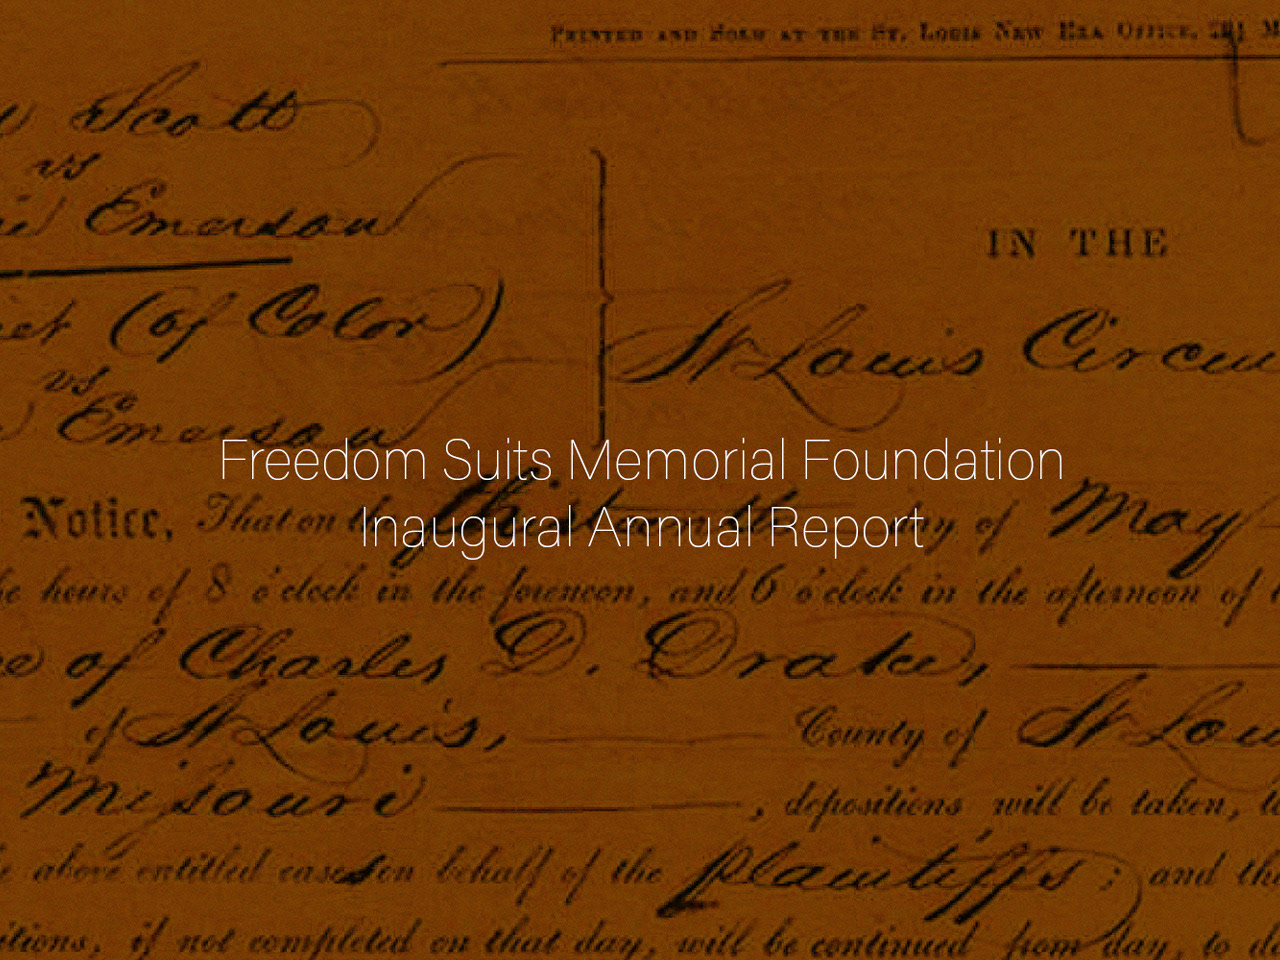 PRINTED AND SOLD AT THE ST. LOUIS NEW ERA OFFICE,
Scott
vs
Emerson
(of Color)
vs
Emerson
IN THE
St Louis
Freedom Suits Memorial Foundation
Inaugural Annual Report
Notice, That on the day of May
hours of 8 o'clock in the forenoon, and 6 o'clock in the afternoon of
of Charles D. Drake,
of St Louis, County of St
Missouri , depositions will be taken,
above entitled cases on behalf of the plaintiffs; and
if not completed on that day, will be continued from day, to